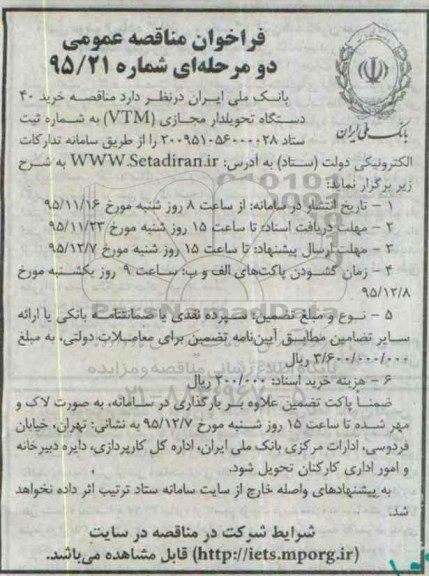 فراخوان مناقصه عمومی
دو مرحله‌ای شماره ۹۵/۲۱
بانک ملی ایران
بانک ملی ایران درنظر دارد مناقصه خرید ۴۰
دستگاه تحویلدار مجازی (VTM) به شماره ثبت
ستاد ۲۰۰۹۵۱۰۵۶۰۰۰۰۲۸ را از طریق سامانه تدارکات
الکترونیکی دولت (ستاد) به آدرس: WWW.Setadiran.ir به شرح
زیر برگزار نماید:
۱ – تاریخ انتشار در سامانه: از ساعت ۸ روز شنبه مورخ ۹۵/۱۱/۱۶
۲ – مهلت دریافت اسناد: تا ساعت ۱۵ روز شنبه مورخ ۹۵/۱۱/۲۳
۳ – مهلت ارسال پیشنهاد: تا ساعت ۱۵ روز شنبه مورخ ۹۵/۱۲/۷
۴ – زمان گشودن پاکت‌های الف و ب: ساعت ۹ روز یکشنبه مورخ
۹۵/۱۲/۸
۵ – نوع و مبلغ تضمین: سپرده نقدی یا ضمانتنامه بانکی یا ارائه
سایر تضامین مطابق آیین‌نامه تضمین برای معاملات دولتی، به مبلغ
۳/۶۰۰/۰۰۰/۰۰۰ ریال
۶ – هزینه خرید اسناد: ۲۰۰/۰۰۰ ریال
ضمنا پاکت تضمین علاوه بر بارگذاری در سامانه، به صورت لاک و
مهر شده تا ساعت ۱۵ روز شنبه مورخ ۹۵/۱۲/۷ به نشانی: تهران، خیابان
فردوسی، ادارات مرکزی بانک ملی ایران، اداره کل کارپردازی، دایره دبیرخانه
و امور اداری کارکنان تحویل شود.
به پیشنهادهای واصله خارج از سایت سامانه ستاد ترتیب اثر داده نخواهد
شد.
شرایط شرکت در مناقصه در سایت
(http://iets.mporg.ir) قابل مشاهده می‌باشد.